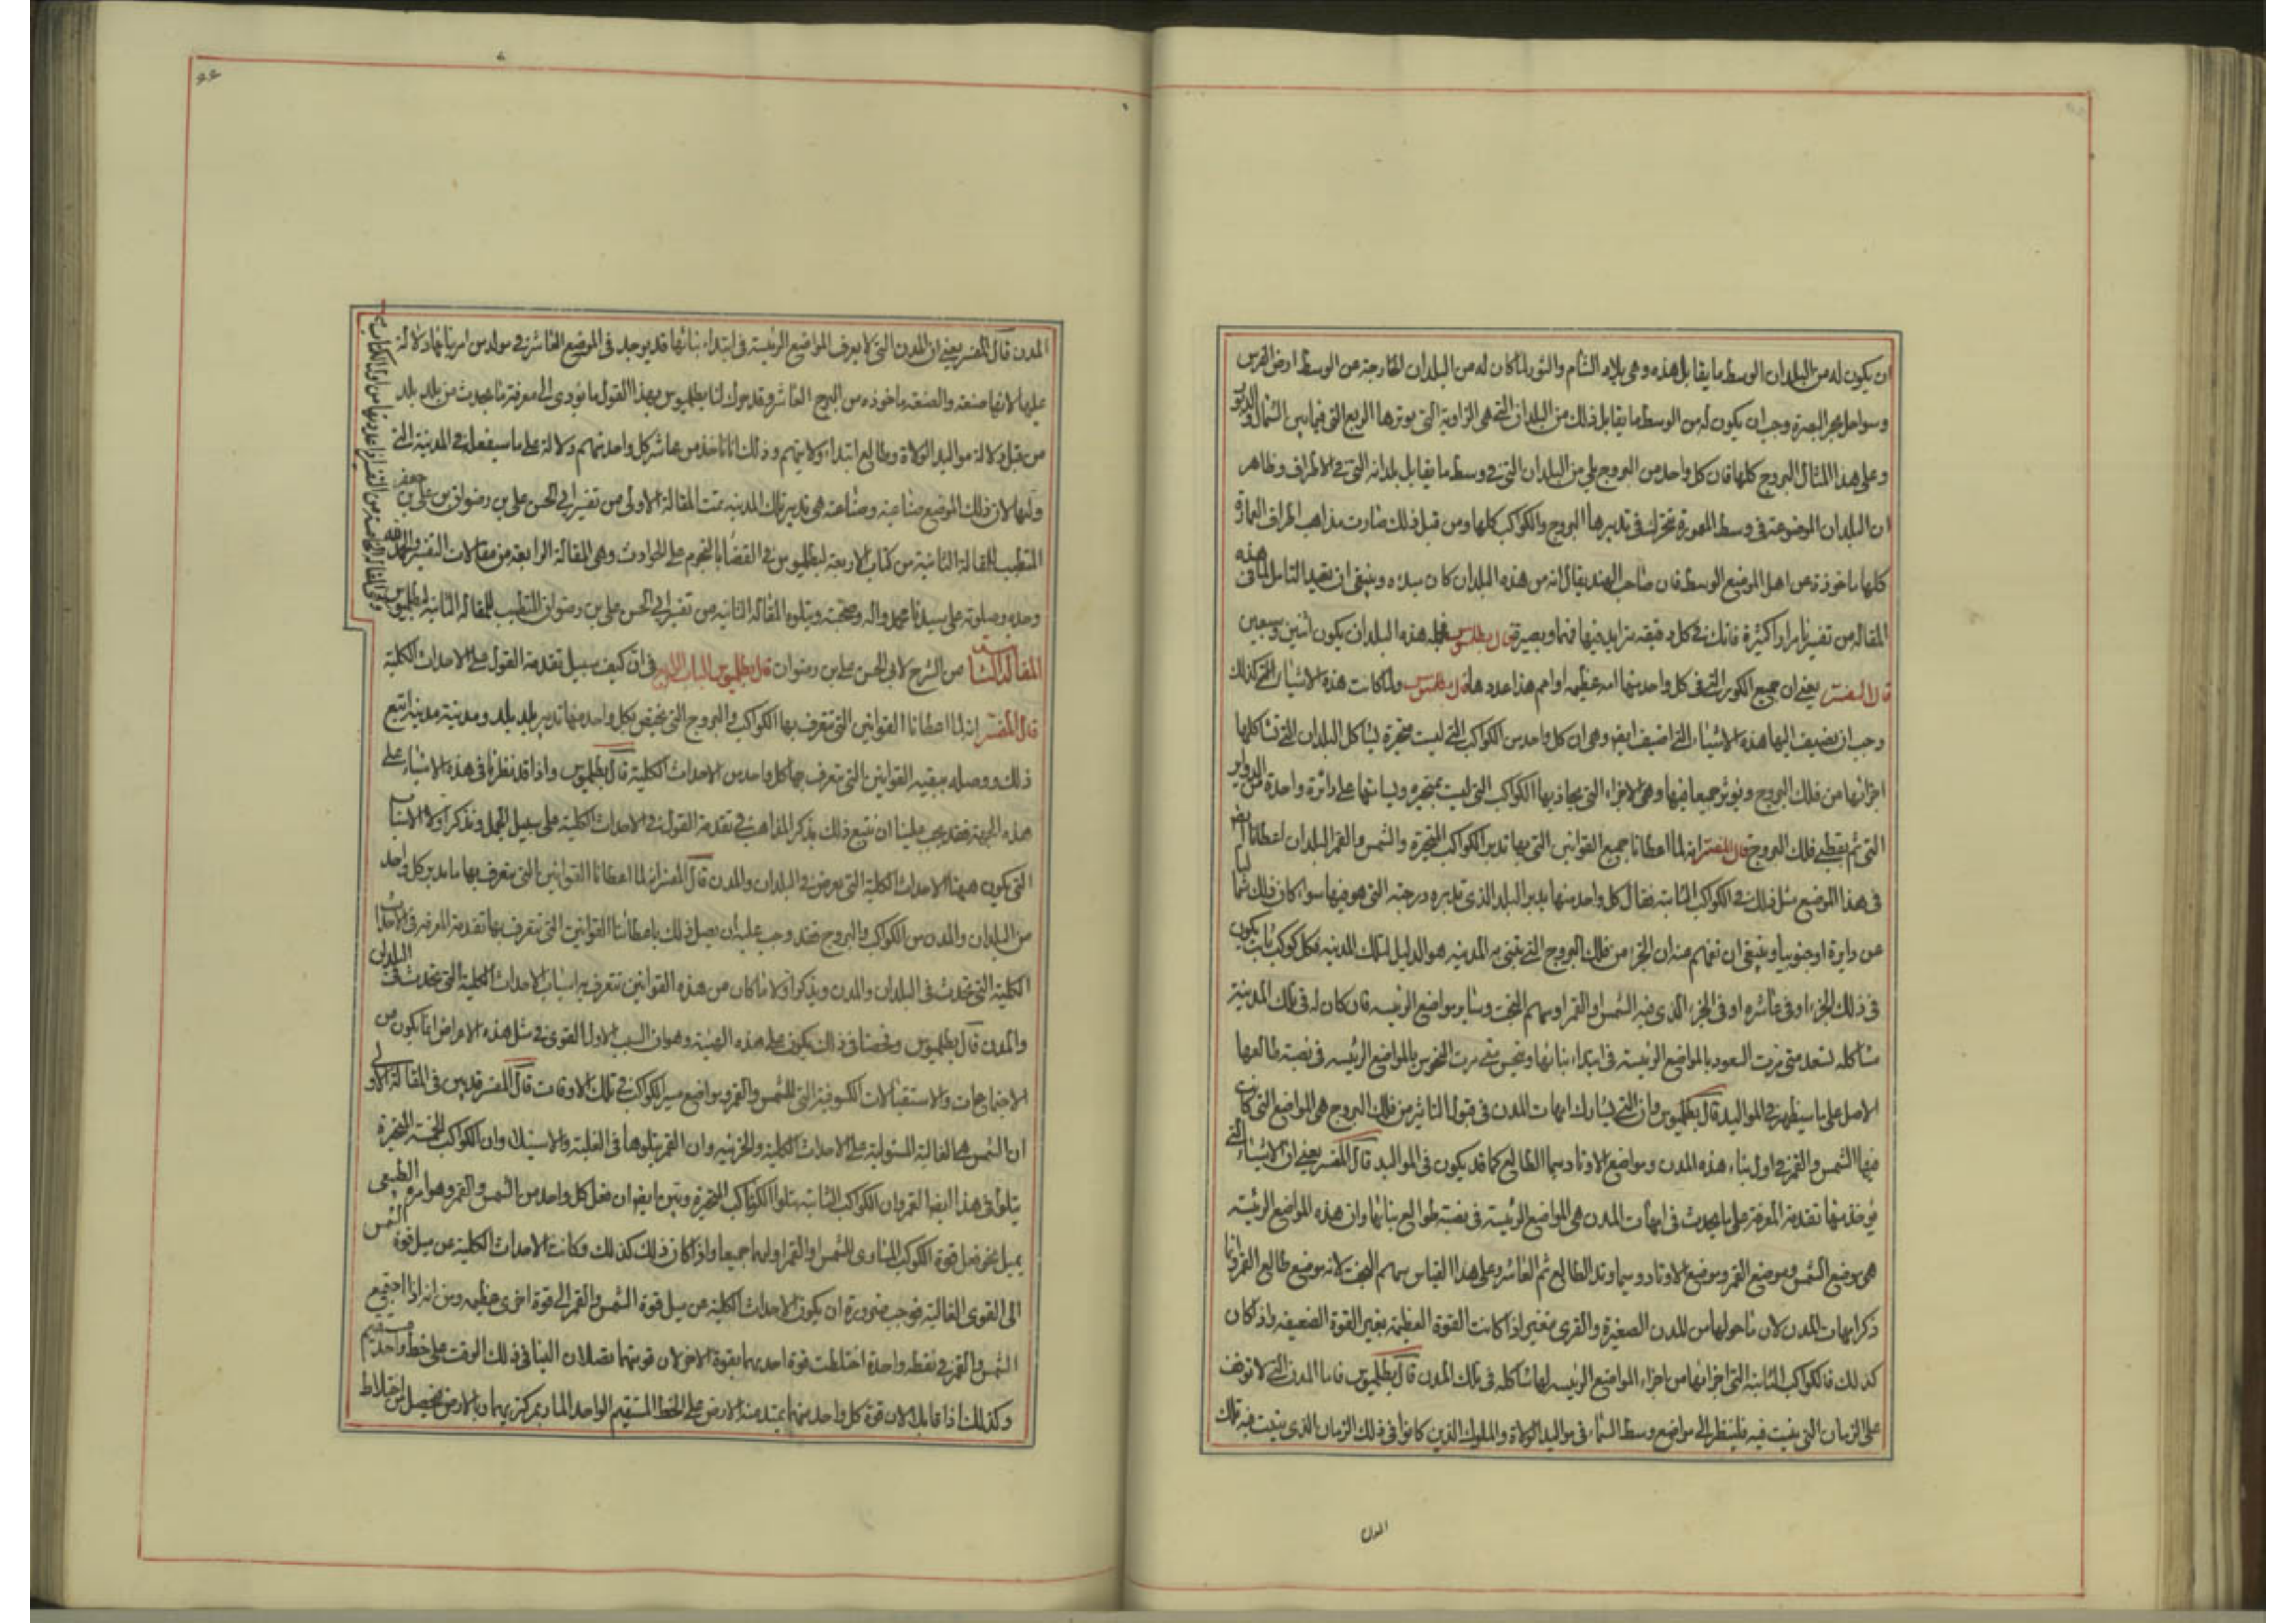 ان يكون له من البلدان الوسط ما يقابل هذه وهى بلاد الشام والثور لما كان له من البلدان الخارجة عن الوسط ارض الفرس
وسواحل بحر البصرة وجب ان يكون له من الوسط ما يقابل ذلك من البلدان التى هى الزاوية التى يوترها الربع التى فيما بين الشمال والدبور
وعلى هذا المثال البروج كلها فان كل واحد من البروج يلى من البلدان التى فى وسط ما يقابل بلدانه التى فى الاطراف وظاهر
ان البلدان الموضوعة فى وسط المعمورة تشترك فى تدبيرها البروج والكواكب كلها ومن قبل ذلك صارت مذاهب اطراف العمارة
كلها ماخوذة عن اهل الموضع الوسط فان صاحب الهند يقال انه من هذه البلدان كان مبدءه وينبغى ان تعيد التامل لما فى هذه
المقاله من تفسيرنا مرارا كثيرة فانك فى كل دفيقه تزايد فيها فهما وبصيرة قال بطلميوس فجمله هذه البلدان يكون اثنين وسبعين
قال المفسر يعنى ان جميع الكور التى فى كل واحد منها امه عظيمه او امم هذا عددها قال بطلميوس ولما كانت هذه الاشياء التى كذلك
وجب ان نضيف اليها هذه الاشياء التى اضيف ايضا وهى ان كل واحد من الكواكب التى ليست متحيرة يشاكل البلدان التى تشاكلها
اجزائها من فلك البروج ويوثر جميعا فيها وهى الاجزاء التى يحاذيها الكواكب التى ليست بمتحيره ويسامتها على دائرة واحدة من الدواير
التى تمر بقطبى فلك البروج قال المفسر انه لما اعطانا جميع القوانين التى بها تدبر الكواكب المتحيرة والشمس والقمر البلدان اعطانا ايضا
فى هذا الموضع مثل ذلك فى الكواكب الثابته فقال كل واحد منها يدبر البلد الذى تدبره درجته التى هو فيها سوا كان فلك شماليا
عن دايرة او جنوبيا وينبغى ان تفهم عنه ان الجزء من فلك البروج التى يبتنى به المدينه هو الدليل لتلك المدينه فكل كوكب ثابت يكون
فى ذلك الجزء او فى عاشره او فى الجزء الذى فيه الشمس او القمر او سهم البخت وسايرمواضع الرئيسه فان كان له فى تلك المدينة
مشاكله تسعد متى مرت السعود بالمواضع الرئيسة فى ابتداء بنائها وينحس متى مرت النحوس بالمواضع الرئيسه فى نصبة طالعها
الاصل على ما سيظهر فى المواليد قال بطلميوس وان التى يشارك امهات المدن فى قبول التاثير من فلك البروج هى المواضع التى كانت
فيها الشمس والقمر فى اول بناء هذه المدن ومواضع الاوتاد سيما الطالع كما قد يكون فى المواليد قال المفسر يعنى ان الاشياء التى
يوخذ منها تقدمة المعرفة على ما يحدث فى امهات المدن هى المواضع الرئيسة فى نصبة طوالع بنائها وان هذه المواضع الرئيسة
هى موضع الشمس وموضع القمر وموضع الاوتاد وسيما وتد الطالع ثم العاشر وعلى هذا القياس سهم البخت لانه موضع طالع القمر وانما
ذكر امهات المدن لان ما حولها من المدن الصغيرة والقرى تتغير اذا كانت القوة العظيمة يغير القوة الضعيفه واذ كان
كذلك فالكواكب الثابتة التى اجزائها من اجزاء المواضع الرئيسه لها مشاكله فى تلك المدن قال بطلميوس فاما المدن التى لا توقف
على الزمان التى بنيت فيه فلينظر الى مواضع وسط السماء فى مواليد الولاة والملوك الذين كانوا فى ذلك الزمان الذى بنيت فيه تلك
المدن
المدن قال المفسر يعنى ان المدن التى لا يعرف المواضع الرئيسة فى ابتداء بنائها قد يوجد فى الموضع العاشر فى مولد من امر ببنائها دلالة
عليها لانها صنعته والصنعه ماخوذه من البرج العاشر وقد برك لنا بطلميوس بهذا القول ما يودى الى معرفة ما يحدث من بلد بلد
من قبل دلالة مواليد الولاة وطالع ابتداء ولايتهم وذلك انا ناخذ من عاشر كل واحد منهم دلالة على ما سيفعل فى المدينة التى
وليها لان ذلك الموضع صناعته وصناعته هى تدبير تلك المدينه تمت المقالة الاولى من تفسير ابى الحسن على بن رضوان بن على بن جعفر
المتطبب للمقالة الثانية من كتاب الاربعة لبطلميوس فى القضايا بالنجوم على الحوادث وهى المقالة الرابعة من مقالات التفسير والحمد لله
وحده وصلوته على سيدنا محمد واله وصحبه ويتلوه المقالة الثانيه من تفسير ابى الحسن على بن رضوان المتطبب للمقاله الثانيه لبطلميوس
وهى المقالة الخامسة من التفسير
المقالة الثانيه من الشرح لابى الحسن على بن رضوان قال بطلميوس الباب الرابع فى ان كيف سبيل تقدمة القول على الاحداث الكلية
قال المفسر انه لما اعطانا القوانين التى نتعرف بها الكواكب والبروج التى يختص بكل واحد منها تدبير بلد بلد ومدينة مدينة اتبع
ذلك ووصله ببقية القوانين التى يتعرف بها كل واحد من الاحداث الكلية قال بطلميوس واذا قد نظرنا فى هذه الاشياء على
هذه الجهة فقد يجب علينا ان نتبع ذلك بذكر المذاهب فى تقدمة القول فى الاحداث الكلية على سبيل الجمل ونذكر اولا الاسباب
التى يكون عنها الاحداث الكلية التى تعرض فى البلدان والمدن قال المفسر انه لما اعطانا القوانين التى يتعرف بها ما يدبر كل واحد
من البلدان والمدن من الكواكب والبروج فقد وجب عليه ان يصل ذلك باعطائنا القوانين التى يتعرف بها تقدمة المعرفه فى الاحداث
الكلية التى تحدث فى البلدان والمدن ويذكر اولا ما كان من هذه القوانين تتعرف به اسباب الاحداث الكلية التى تحدث فى البلدان
والمدن قال بطلميوس وفحصنا فى ذلك يكون على هذه الهيئة وهو ان السبب الاول القوى فى مثل هذه الاعراض انما يكون من
الاجتماعات والاستقبالات الكسوفية التى للشمس والقمر ومواضع مسير الكواكب فى تلك الاوقات قال المفسر قد بين فى المقالة الاولى
ان الشمس هى الغالبة المستولية على الاحداث الكلية والجزئيه وان القمر يتلوها فى الغلبة والاستيلا وان الكواكب الخمسة المتحيرة
يتلو فى هذا ايضا القمر وان الكواكب الثابتة يتلوا الكواكب المتحيرة وبين ايضا ان فعل كل واحد من الشمس والقمر وهو امره الطبيعى
يميل نحو فعل قوة الكوكب المساوى للشمس او القمر او لهما جميعا واذا كان ذلك كذلك وكانت الاحداث الكلية عن ميل قوة الشمس
الى القوى الغالبة فوجب ضرورة ان يكون الاحداث الكلية عن ميل قوة الشمس والقمر الى قوة اخرى عظيمه وبين انه اذا اجتمع
الشمس والقمر فى نقطه واحدة اختلطت قوة احديهما بقوة الاخر لان قوتهما تصلان الينا فى ذلك الوقت على خط واحد مستقيم
وكذلك اذا تقابلا لان قوة كل واحد منهما يمتد منه الارض على الخط المستقيم الواحد المار بمركزيهما وبالارض فيحصل من اختلاط